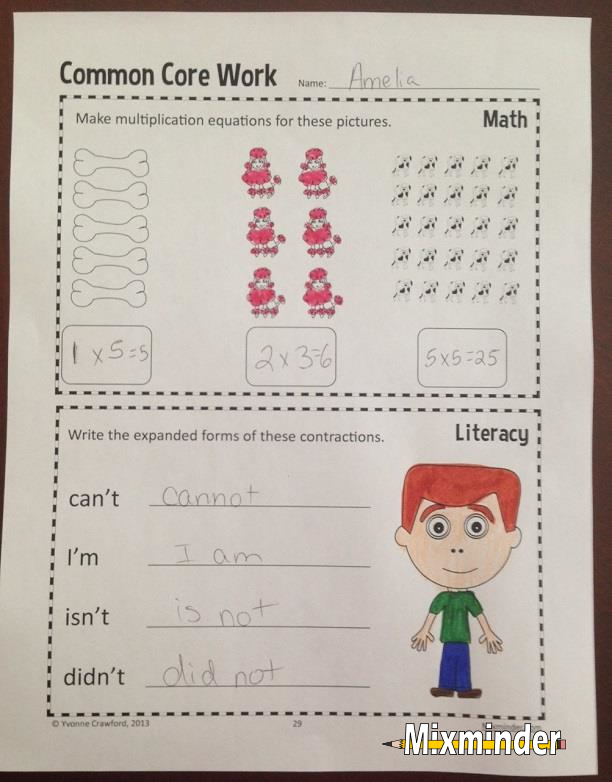 Common Core Work Name: Amelia
Make multiplication equations for these pictures. Math
1 x 5=5 2 x 3=6 5x5=25
Write the expanded forms of these contractions. Literacy
can't cannot
I'm I am
isn't is not
didn't did not
© Yvonne Crawford, 2013 29
Mixminder